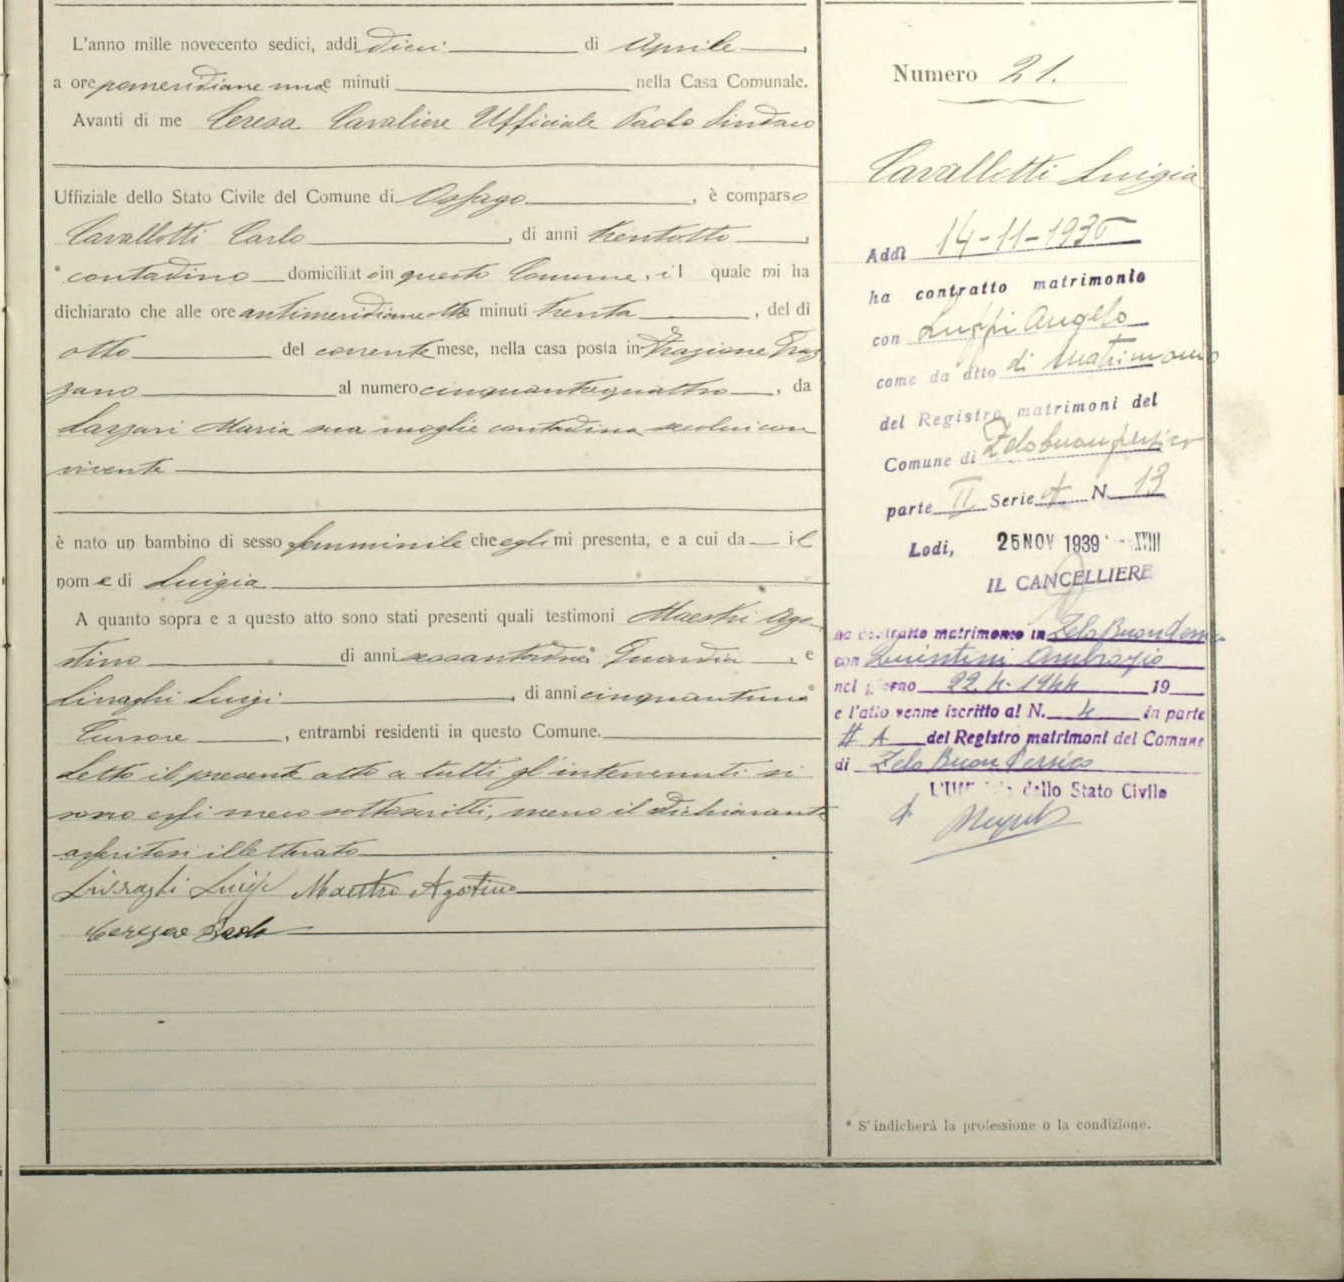 L'anno mille novecento sedici, addi dieci di Aprile,
a ore pomeridiane una e minuti nella Casa Comunale.
Avanti di me Ceresa Cavaliere Ufficiale Paolo Sindaco
Uffiziale dello Stato Civile del Comune di Ossago, è comparso
Cavallotti Carlo, di anni trentotto,
* contadino domiciliato in questo Comune, il quale mi ha
dichiarato che alle ore antimeridiane otto minuti trenta, del dì
otto del corrente mese, nella casa posta in Frazione
al numero cinquantaquattro, da
Maria sua moglie contadina seco lui con
vivente
è nato un bambino di sesso femminile che egli mi presenta, e a cui da il
nome di Luigia
A quanto sopra e a questo atto sono stati presenti quali testimoni Maestri Ago
stino di anni Guardia, e
Luigi, di anni cinquantuno
Cursore, entrambi residenti in questo Comune.
Letto il presente atto a tutti gl'intervenuti si
sono essi meco sottoscritti, meno il dichiarante
illetterato
Luigi Maestri Agostino
Paolo
Numero 21.
Cavallotti Luigia
Addì 14-11-193
ha contratto matrimonio
con Luppi Angelo
come da atto di Matrimonio
del Registro matrimoni del
Comune di Zelobuonpersico
parte II Serie A N. 13
Lodi, 25 NOV 1939 - XVIII
IL CANCELLIERE
ha contratto matrimonio in Zelo Buon Persico
con Ambrogio
nel giorno 22.4.1944 19
e l'atto venne iscritto al N. 4 in parte
II A del Registro matrimoni del Comune
di Zelo Buon Persico
L'Uff dello Stato Civile
* S'indicherà la professione o la condizione.